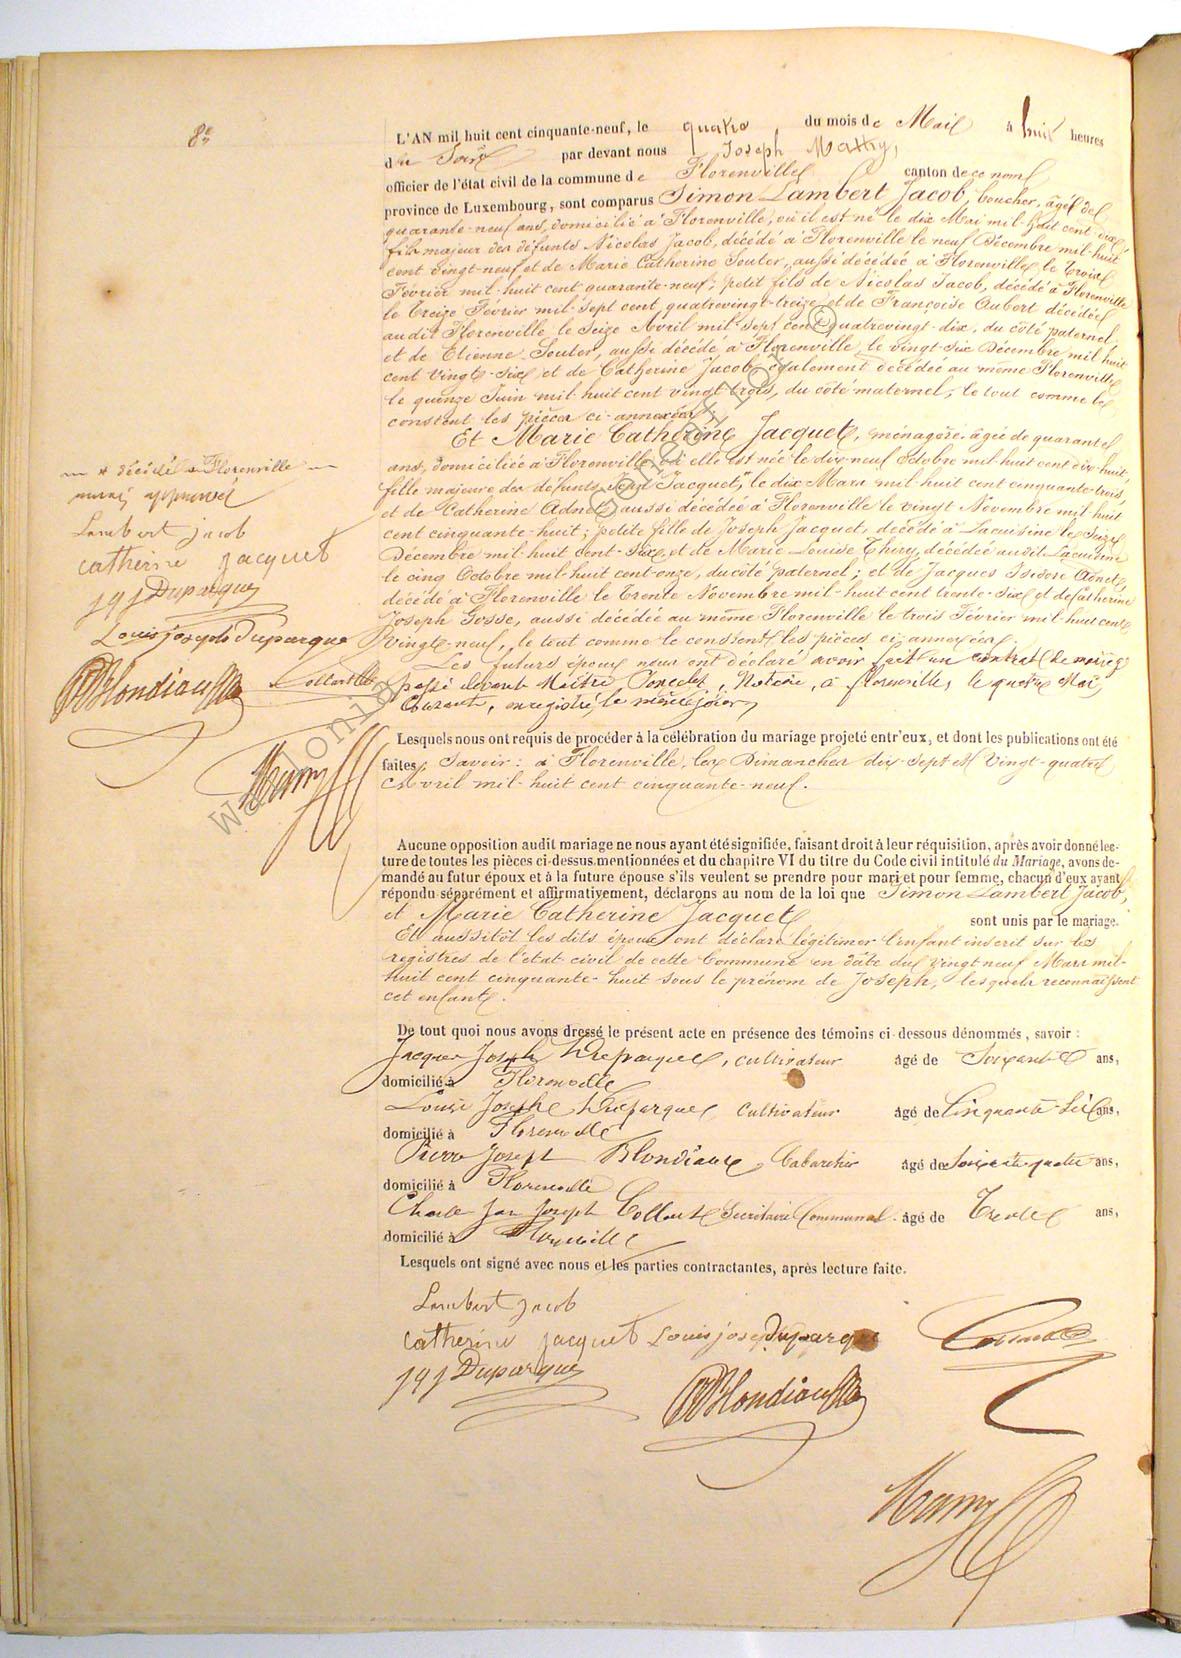 8e
L'AN mil huit cent cinquante-neuf, le quatre du mois de Mai à huit heures
du Soir par devant nous Joseph Mathy,
officier de l'état civil de la commune de Florenville canton de ce nom
province de Luxembourg, sont comparus Simon Lambert Jacob, boucher, âgé de
quarante-neuf ans, domicilié à Florenville, où il est né le dix Mai mil-huit cent dix,
fils majeur des défunts Nicolas Jacob, décédé à Florenville le neuf Décembre mil-huit
cent vingt-neuf et de Marie Catherine Souter, aussi décédée à Florenville le trois
Février mil-huit cent quarante-neuf; petit fils de Nicolas Jacob, décédé à Florenville
le treize Février mil-sept cent quatrevingt-treize et de Françoise Aubert décédée
audit Florenville le seize Avril mil-sept cent quatrevingt-dix, du côté paternel;
et de Etienne Souter, aussi décédé à Florenville le vingt-six Décembre mil huit
cent vingt-six et de Catherine Jacob également décédée au même Florenville
le quinze Juin mil-huit cent vingt trois, du côté maternel; le tout comme le
constent les pièces ci-annexées;
Et Marie Catherine Jacquet, ménagère, âgée de quarante
ans, domiciliée à Florenville, où elle est née le dix-neuf Octobre mil-huit cent dix-huit,
fille majeure des défunts Jean Jacquet,* le dix Mars mil-huit cent cinquante-trois
et de Catherine Adnet aussi décédée à Florenville le vingt Novembre mil-huit
cent cinquante-huit; petite fille de Joseph Jacquet, décédé à Lacuisine le onze
Décembre mil-huit cent-six, et de Marie Louise Thiry, décédée audit Lacuisine
le cinq Octobre mil-huit cent-onze, du côté paternel; et de Jacques Isidore Adnet,
décédé à Florenville le trente Novembre mil-huit cent trente-six et de Catherine
Joseph Gosse, aussi décédée au même Florenville le trois Février mil-huit cent
vingt-neuf, le tout comme le constent les pièces ci-annexées.
Les futurs époux nous ont déclaré avoir fait un contrat de mariage
passé devant Maître , Notaire, à Florenville, le quatre Mai
Courant, enregistré le même jour,
* décédé à Florenville
approuvé
Lambert jacob
catherine jacquet
J J Duparque
Louis joseph duparque
PJ Blondiaux
Collart
Mathy
Lesquels nous ont requis de procéder à la célébration du mariage projeté entr'eux, et dont les publications ont été
faites; Savoir: à Florenville, les Dimanches dix-sept et Vingt-quatre
Avril mil-huit cent cinquante-neuf.
Aucune opposition audit mariage ne nous ayant été signifiée, faisant droit à leur réquisition, après avoir donné lec-
ture de toutes les pièces ci-dessus mentionnées et du chapitre VI du titre du Code civil intitulé du Mariage, avons de-
mandé au futur époux et à la future épouse s'ils veulent se prendre pour mari et pour femme, chacun d'eux ayant
répondu séparément et affirmativement, déclarons au nom de la loi que Simon Lambert Jacob,
et Marie Catherine Jacquet sont unis par le mariage.
Et aussitôt les dits époux ont déclaré légitimer l'enfant inscrit sur les
registres de l'état civil de cette Commune en date du vingt neuf Mars mil-
huit cent cinquante-huit sous le prénom de Joseph, lesquels reconnaissent
cet enfant.
De tout quoi nous avons dressé le présent acte en présence des témoins ci-dessous dénommés, savoir:
Jacques Joseph Duparque, cultivateur âgé de Soixante ans,
domicilié à Florenville
Louis Joseph Duparque, cultivateur âgé de Cinquante-six ans,
domicilié à Florenville
Pierre Joseph Blondiaux, Cabaretier âgé de Soixante quatre ans,
domicilié à Florenville
Charles Jean Joseph Collart Secrétaire Communal âgé de Trente ans,
domicilié à Florenville
Lesquels ont signé avec nous et les parties contractantes, après lecture faite.
Lambert jacob
catherine jacquet Louis joseph duparque Collart
J J Duparque
PJ Blondiaux
Mathy
Wallonia Genealogy ©